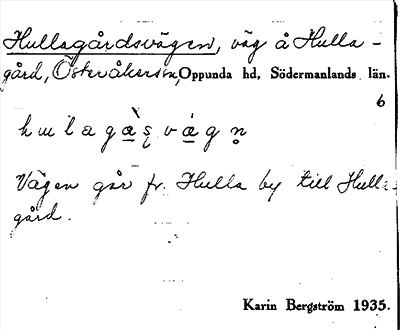 Hullagårdsvägen, väg å Hulla-
gård, Österåkers sn, Oppunda hd, Södermanlands län.
6
Vägen går fr. Hulla by till Hulla-
gård.
Karin Bergström 1935.